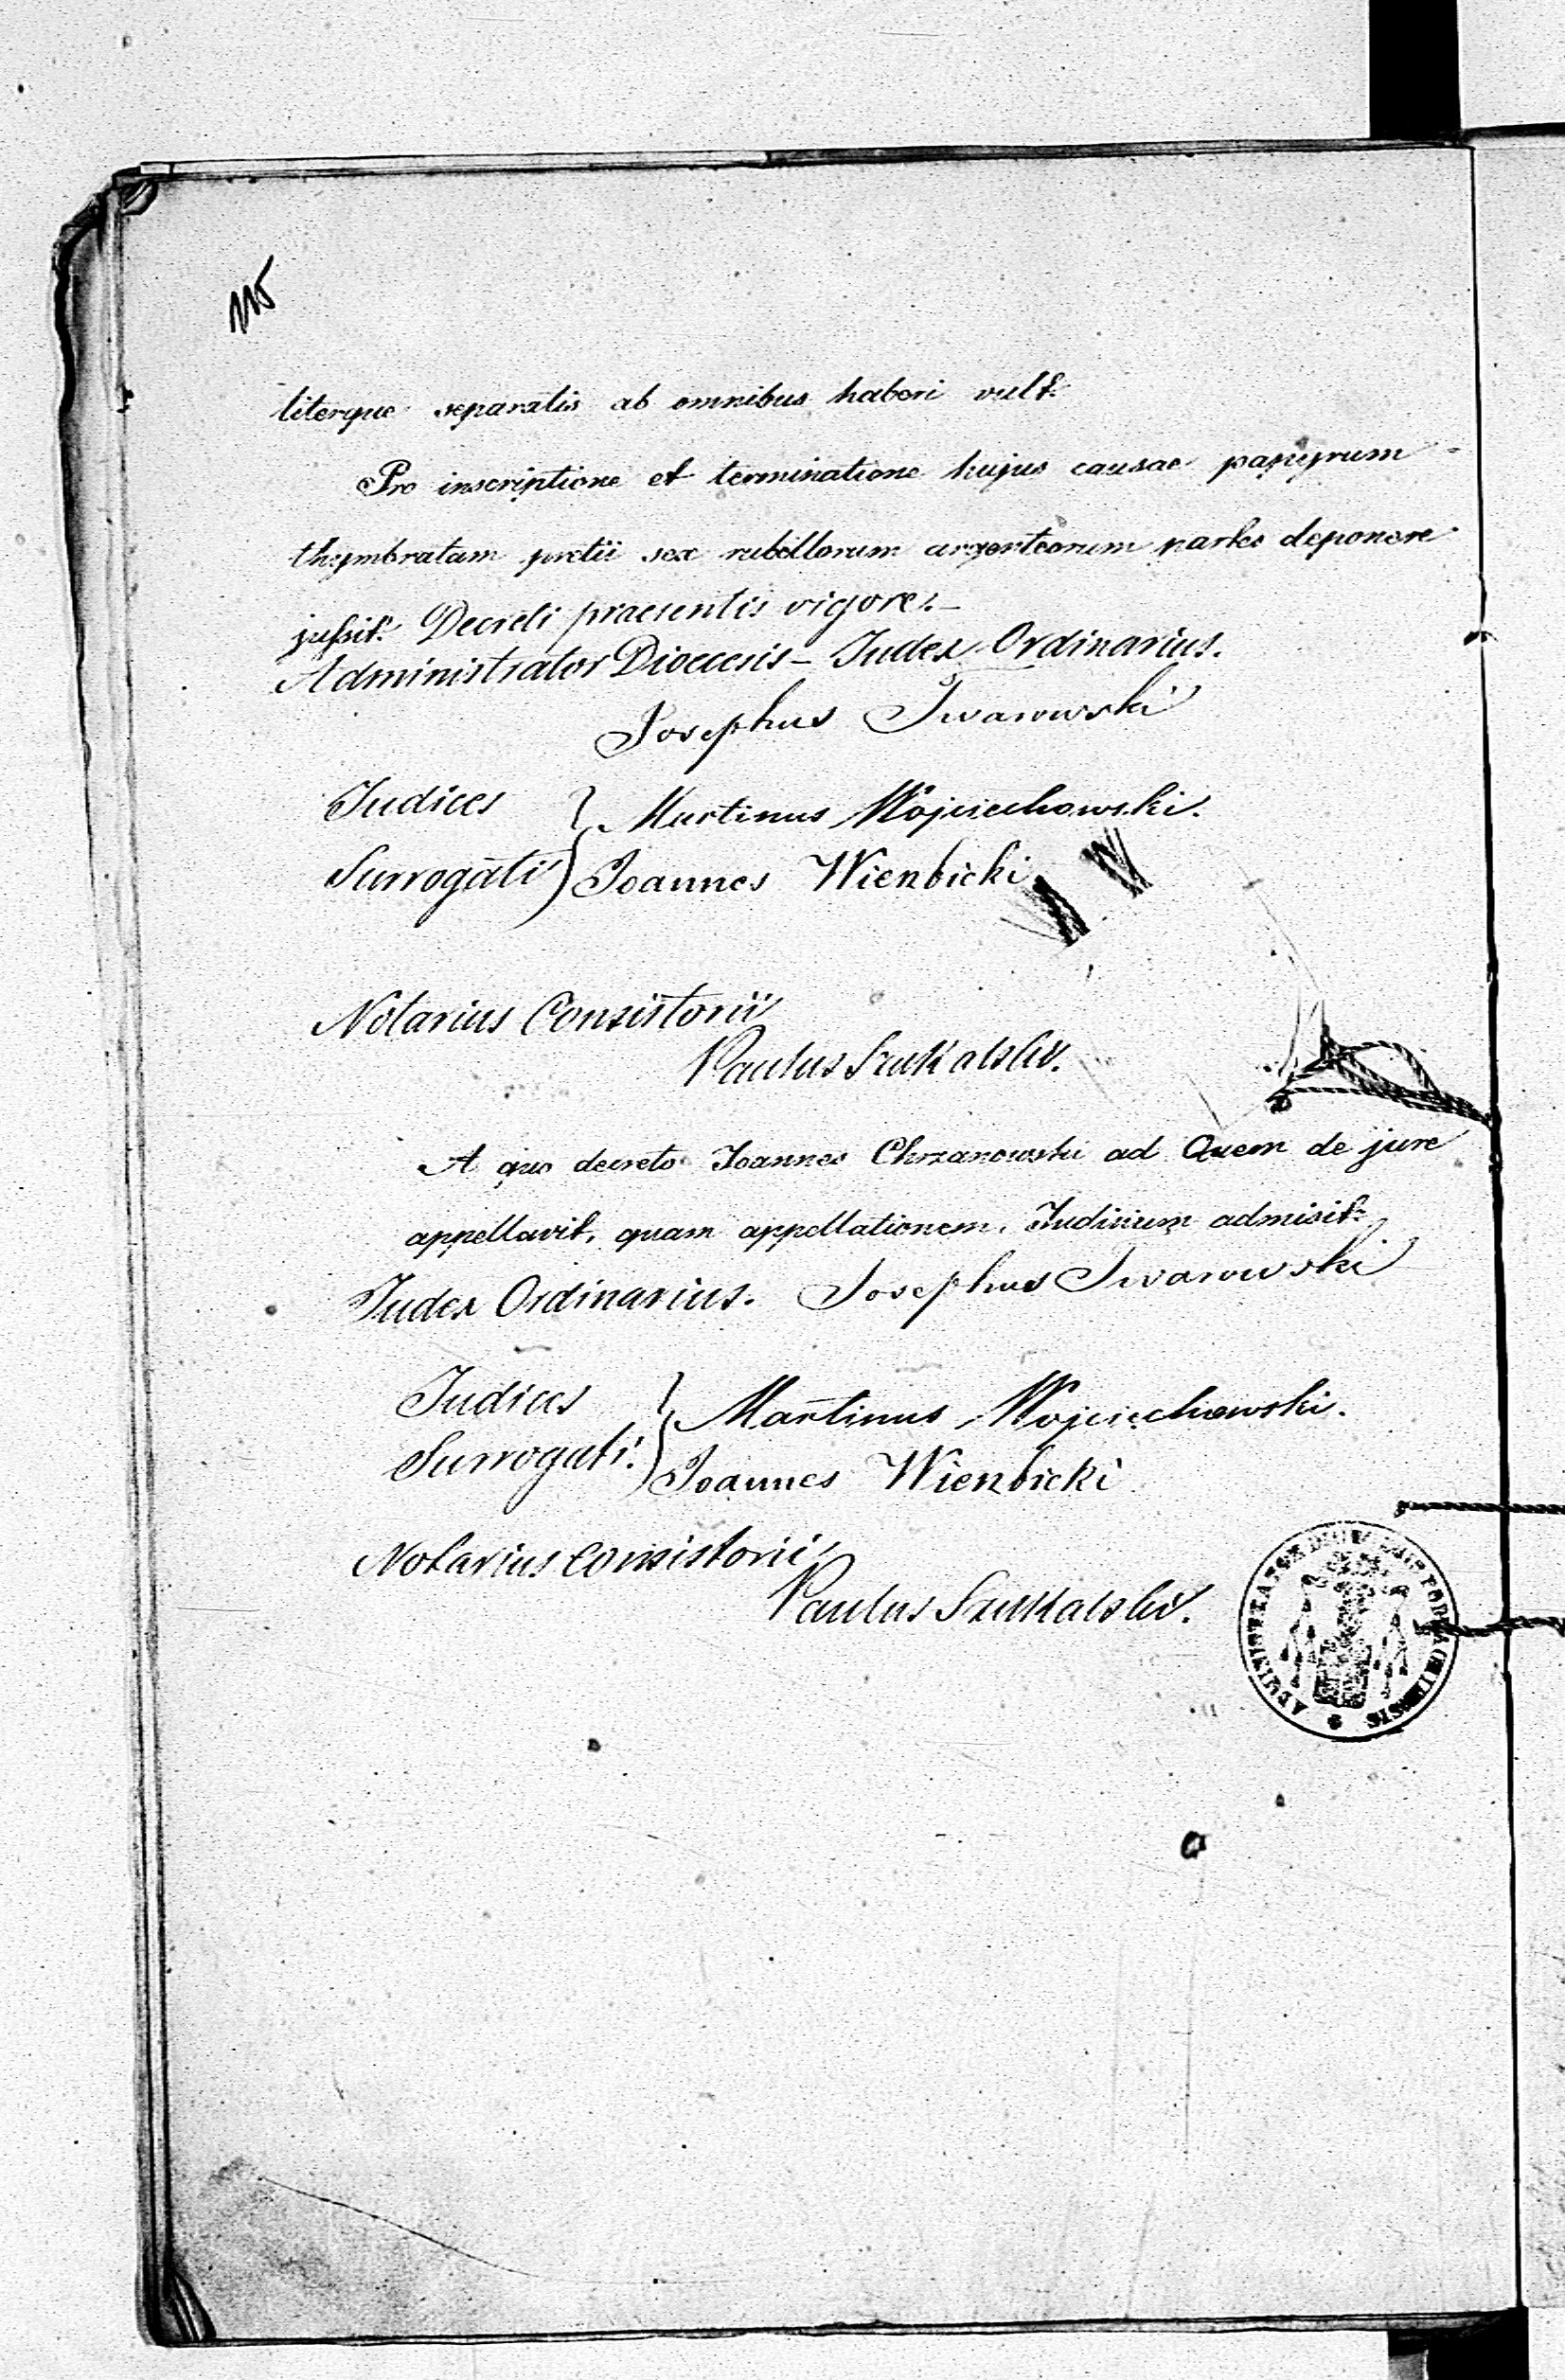 115
literque separatis ab omnibus haberi vult.
Pro inscriptione et terminatione hujus causae papyrum
thymbratam pretii sex rubellorum argenteorum partes deponere
jussit. Decreti praesentis vigore.—
Administrator Dioecesis — Judex Ordinarius.
Josephus Twarowski
Judices Martinus Wojciechowski.
Surrogati Joannes Wienbicki
Notarius Consistorii
Paulus Szukalski.
A quo decreto Joannes Chrzanowski ad Quem de jure
appellavit, quam appellationem, Judicium admisit.
Judex Ordinarius. Josephus Twarowski
Judices Martinus Wojciechowski.
Surrogati. Joannes Wienbicki
Notarius Consistorii
Paulus Szukalski.
ADMINISTRATOR PODLACHIENSIS